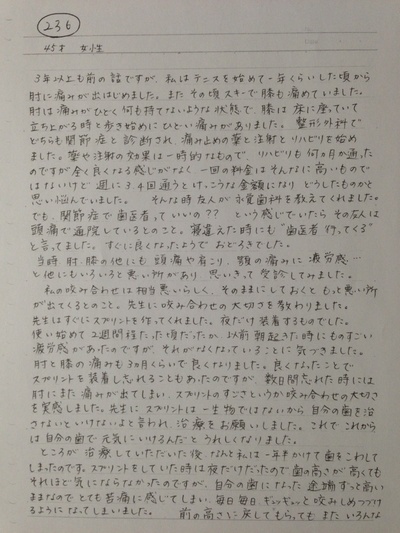 236
45才 女性
3年以上も前の話ですが、私はテニスを始めて一年くらいした頃から
肘に痛みが出はじめました。またその頃スキーで膝も痛めていました。
肘は痛みがひどく何も持てないような状態で、膝は床に座っていて
立ち上がる時と歩き始めにひどい痛みがありました。整形外科で
どちらも関節症と診断され、痛み止めの薬と注射とリハビリを始め
ました。薬や注射の効果は一時的なもので、リハビリも何ヵ月か通った
のですが全く良くなる感じがなく、一回の料金はそんなに高いもので
はないけど週に3、4回通うとけっこうな金額になり どうしたものかと
思い悩んでいました。 そんな時友人が 歯科を教えてくれました。
でも、関節症で歯医者っていいの?? という感じでいたら その友人は
頭痛で通院しているとのこと。寝違えた時にも"歯医者 行ってくる"
と言ってました。すぐに良くなったようで おどろきでした。
当時 肘、膝の他にも 頭痛や肩こり、顎の痛みに 疲労感…
と他にもいろいろと悪い所があり、思いきって受診してみました。
私の咬み合わせは相当悪いらしく、そのままにしておくと もっと悪い所
が出てくるとのこと。先生に咬み合わせの大切さを教わりました。
先生はすぐにスプリントを作ってくれました。夜だけ装着するものでした。
使い始めて2週間程たった頃だったか 以前 朝起きた時にものすごい
疲労感があったのですが、それがなくなっていることに気づきました。
肘と膝の痛みも3ヵ月くらいで良くなりました。良くなったことで
スプリントを装着し忘れることもあったのですが、数日間忘れた時には
肘にまた痛みが出てしまい、スプリントのすごさというか咬み合わせの大切さ
を実感しました。先生に スプリントは一生物ではないから 自分の歯を治
さないといけないよと言われ、治療をお願いしました。これで これから
は 自分の歯で元気にいけるんだと うれしくなりました。
ところが 治療していただいた後、なんと私は一年半かけて歯をこわして
しまったのです。スプリントをしていた時は夜だけだったので歯の高さが高くても
それほど気にならなかったのですが、自分の歯になった途端ずっと高い
ままなので とても苦痛に感じてしまい、毎日毎日、ギュッギュッと咬みしめつづけ
るようになってしまいました。 前の高さに戻してもらっても またいろんな